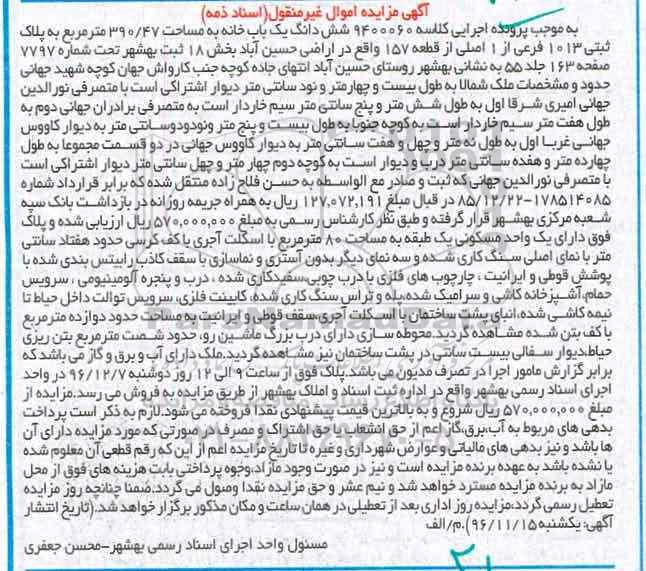 آگهی مزایده اموال غیرمنقول(اسناد ذمه)
به موجب پرونده اجرایی کلاسه ۹۴۰۰۰۶۰ شش دانگ یک باب خانه به مساحت ۳۹۰/۴۷ مترمربع به پلاک
ثبتی ۱۰۱۳ فرعی از ۱ اصلی از قطعه ۱۵۷ واقع در اراضی حسین آباد بخش ۱۸ ثبت بهشهر تحت شماره ۷۷۹۷
صفحه ۱۶۳ جلد ۵۵ به نشانی بهشهر روستای حسین آباد انتهای جاده کوچه جنب کارواش جهان کوچه شهید جهانی
حدود و مشخصات ملک شمالا به طول بیست و چهارمتر و نود سانتی متر دیوار اشتراکی است با متصرفی نورالدین
جهانی امیری شرقا اول به طول شش متر و پنج سانتی متر سیم خاردار است به متصرفی برادران جهانی دوم به
طول هفت متر سیم خاردار است به کوچه جنوبا به طول بیست و پنج متر ونودودوسانتی متر به دیوار کاووس
جهانی غربا اول به طول نه متر و چهل و هفت سانتی متر به دیوار کاووس جهانی در دو قسمت مجموعا به طول
چهارده متر و هفده سانتی متر درب و دیوار است به کوچه دوم چهار متر و چهل سانتی متر دیوار اشتراکی است
با متصرفی نورالدین جهانی که ثبت و صادر مع الواسطه به حسن فلاح زاده منتقل شده که برابر قرارداد شماره
۸۵/۱۲/۲۲-۱۷۸۵۱۴۰۸۵ در قبال مبلغ ۱۲۷,۰۷۲,۱۹۱ ریال به همراه جریمه روزانه در بازداشت بانک سپه
شعبه مرکزی بهشهر قرار گرفته و طبق نظر کارشناس رسمی به مبلغ ۵۷۰,۰۰۰,۰۰۰ ریال ارزیابی شده و پلاک
فوق دارای یک واحد مسکونی یک طبقه به مساحت ۸۰ مترمربع با اسکلت آجری با کف کرسی حدود هفتاد سانتی
متر با نمای اصلی سنگ کاری شده و سه نمای دیگر بدون آستری و نماسازی با سقف کاذب رابیتس بندی شده با
پوشش قوطی و ایرانیت ، چارچوب های فلزی با درب چوبی،سفیدکاری شده ، درب و پنجره آلومینیومی ، سرویس
حمام،آشپزخانه کاشی و سرامیک شده،پله و تراس سنگ کاری شده، کابینت فلزی، سرویس توالت داخل حیاط تا
نیمه کاشی شده،انبای پشت ساختمان با اسکلت آجری،سقف قوطی و ایرانیت به مساحت حدود دوازده مترمربع
با کف بتن شده مشاهده گردید. محوطه سازی دارای درب بزرگ ماشین رو، حدود شصت مترمربع بتن ریزی
حیاط،دیوار سفالی بیست سانتی در پشت ساختمان نیز مشاهده گردید.ملک دارای آب و برق و گاز می باشد که
برابر گزارش مامور اجرا در تصرف مدیون می باشد.پلاک فوق از ساعت ۹ الی ۱۲ روز دوشنبه ۹۶/۱۲/۷ در واحد
اجرای اسناد رسمی بهشهر واقع در اداره ثبت اسناد و املاک بهشهر از طریق مزایده به فروش می رسد.مزایده از
مبلغ ۵۷۰,۰۰۰,۰۰۰ ریال شروع و به بالاترین قیمت پیشنهادی نقدا فروخته می شود.لازم به ذکر است پرداخت
بدهی های مربوط به آب،برق،گاز اعم از حق انشعاب یا حق اشتراک و مصرف در صورتی که مورد مزایده دارای آن
ها باشد و نیز بدهی های مالیاتی و عوارض شهرداری و غیره تا تاریخ مزایده اعم از این که رقم قطعی آن معلوم شده
یا نشده باشد به عهده برنده مزایده است و نیز در صورت وجود مازاد،وجوه پرداختی بابت هزینه های فوق از محل
مازاد به برنده مزایده مسترد خواهد شد و نیم عشر و حق مزایده نقدا وصول می گردد.ضمنا چنانچه روز مزایده
تعطیل رسمی گردد،مزایده روز اداری بعد از تعطیلی در همان ساعت و مکان مذکور برگزار خواهد شد.(تاریخ انتشار
آگهی: یکشنبه ۹۶/۱۱/۱۵).م/الف
مسئول واحد اجرای اسناد رسمی بهشهر-محسن جعفری